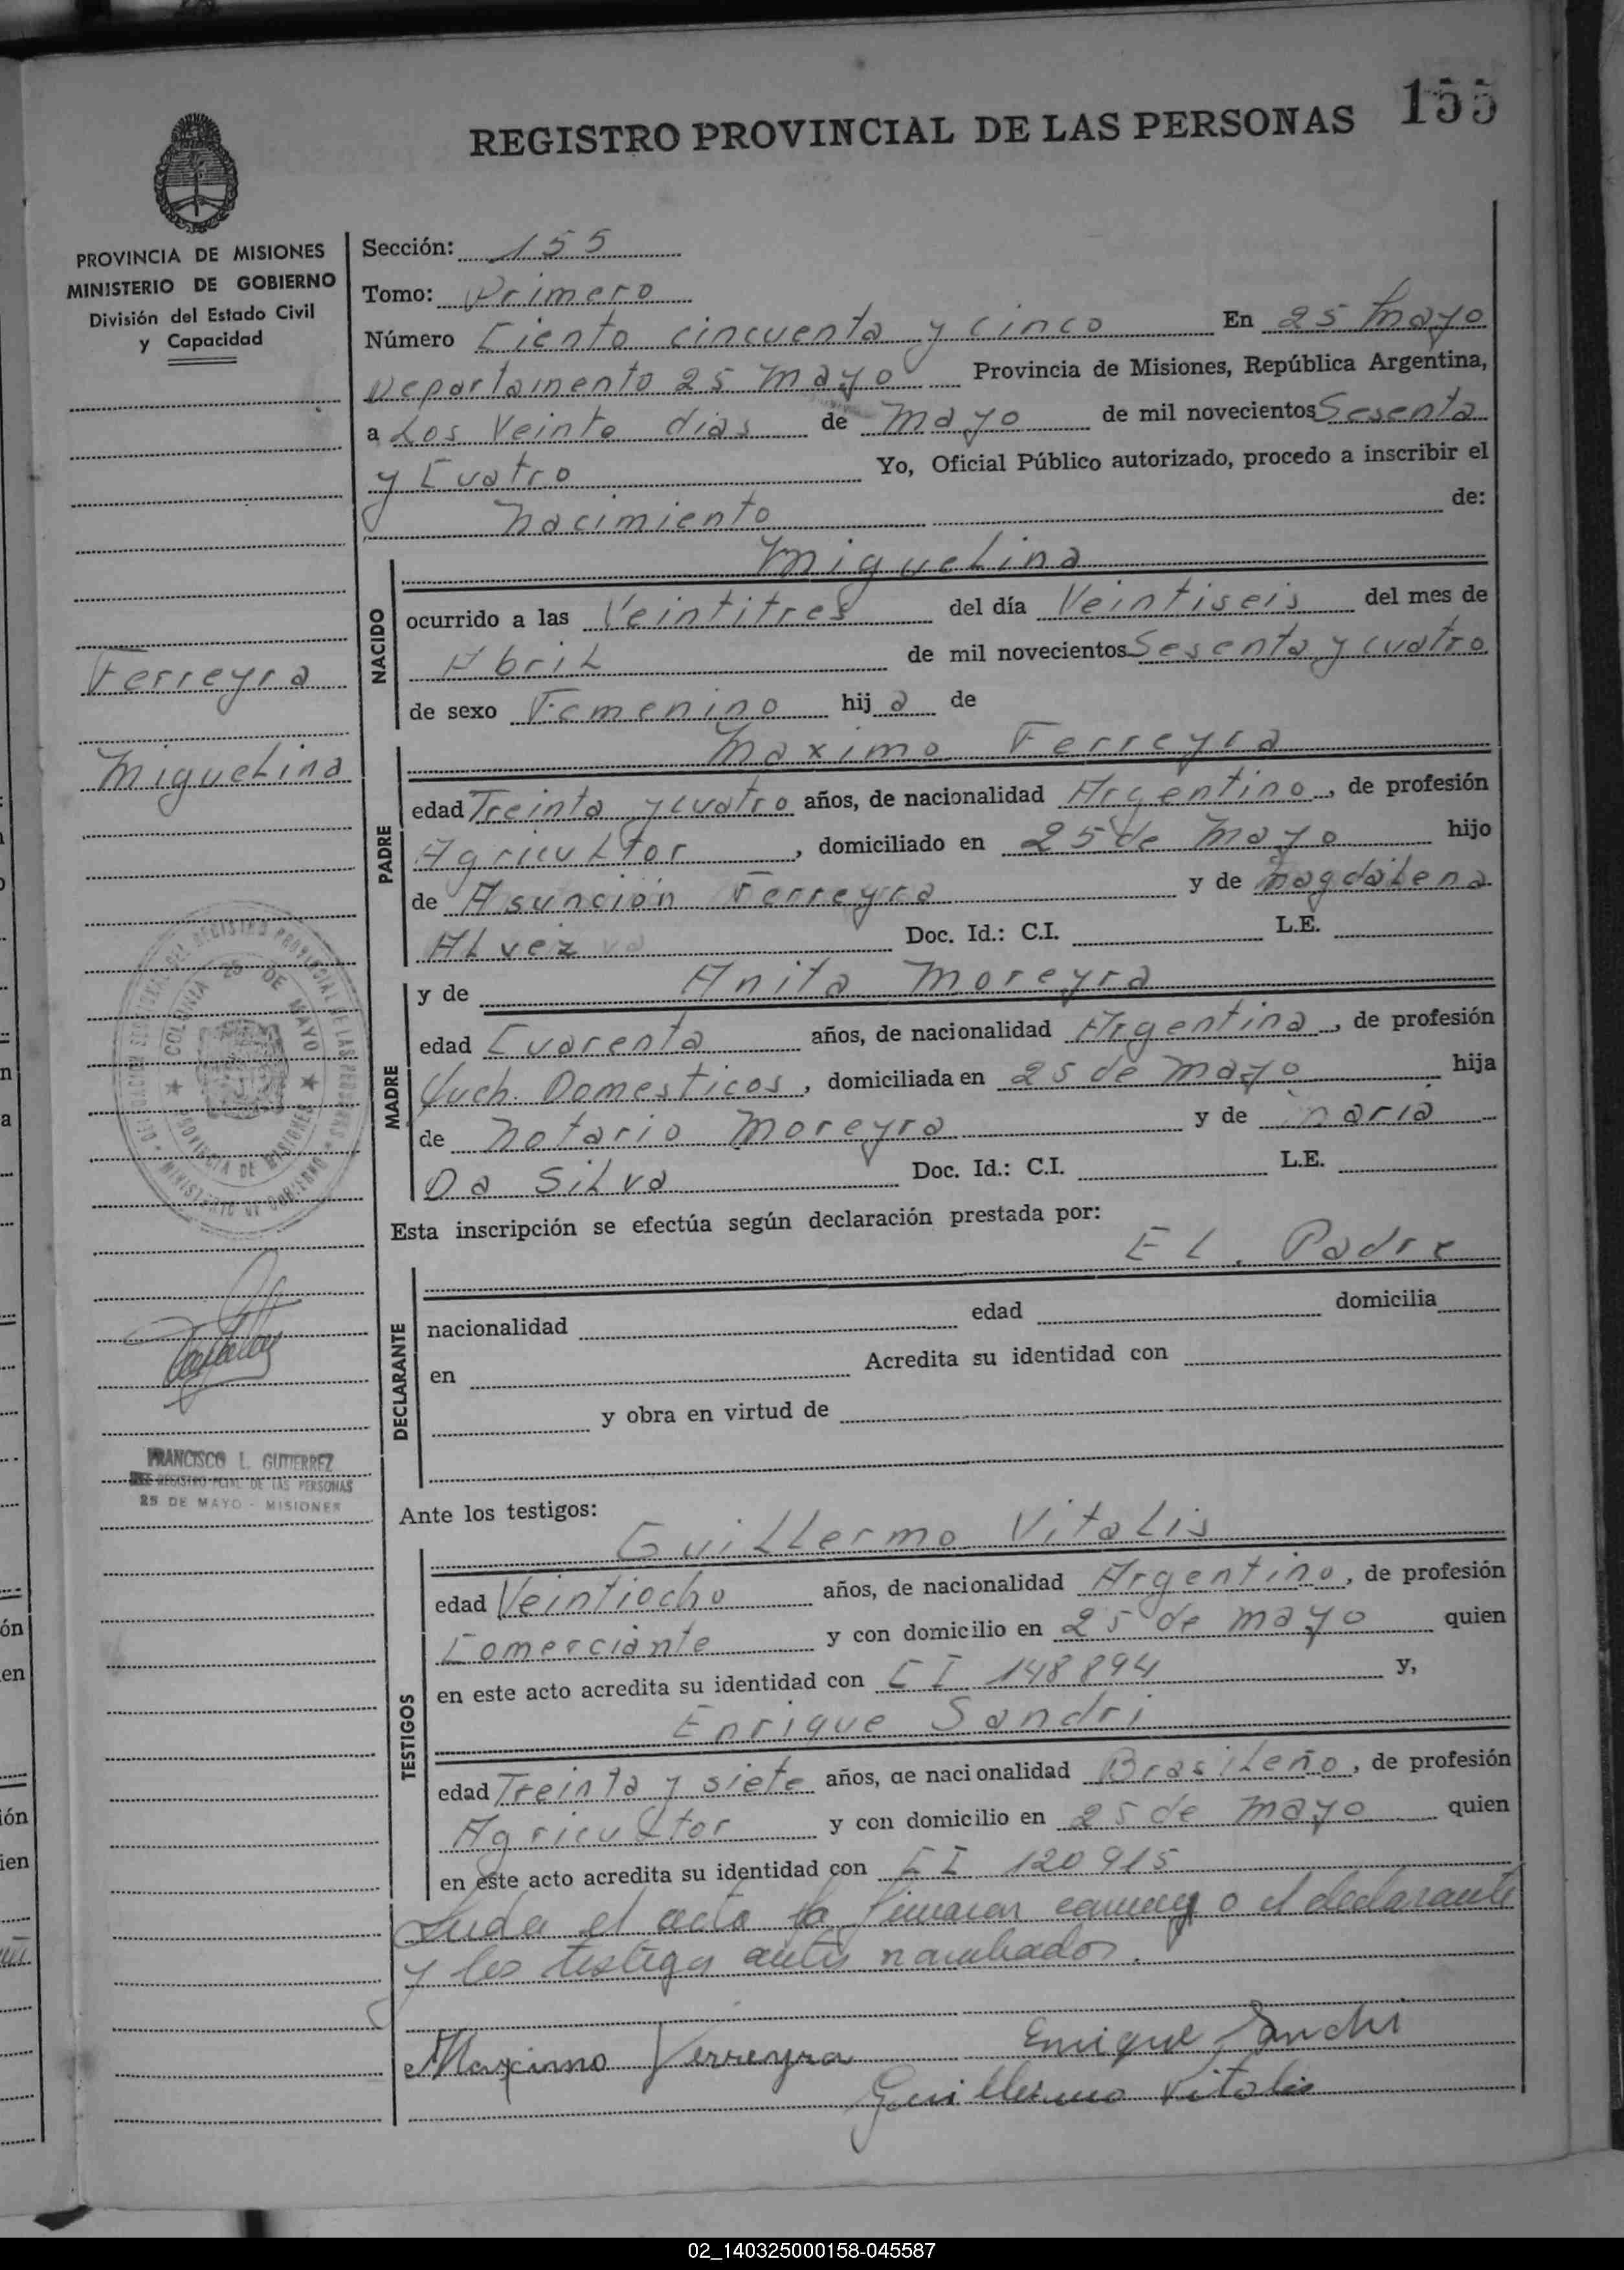 REGISTRO PROVINCIAL DE LAS PERSONAS 155
PROVINCIA DE MISIONES
MINISTERIO DE GOBIERNO
División del Estado Civil
y Capacidad
Sección: 155
Tomo: Primero
Número Ciento cincuenta y cinco En 25 Mayo
Departamento 25 Mayo Provincia de Misiones, República Argentina,
a Los Veinte dias de Mayo de mil novecientos Sesenta
y Cuatro Yo, Oficial Público autorizado, procedo a inscribir el
Nacimiento de:
Ferreyra
Miguelina
NACIDO
Miguelina
ocurrido a las Veintitres del día Veintiseis del mes de
Abril de mil novecientos Sesenta y cuatro
de sexo Femenino hija de
PADRE
Maximo Ferreyra
edad Treinta y cuatro años, de nacionalidad Argentino, de profesión
Agricultor, domiciliado en 25 de Mayo hijo
de Asunción Ferreyra y de Magdalena
Alvez Doc. Id.: C.I. L.E.
MADRE
y de Anita Moreyra
edad Cuarenta años, de nacionalidad Argentina, de profesión
Queh. Domesticos, domiciliada en 25 de Mayo hija
de Notario Moreyra y de Maria
Da Silva Doc. Id.: C.I. L.E.
COLONIA 25 DE MAYO
PROVINCIA DE MISIONES
MINISTERIO DE GOBIERNO
Esta inscripción se efectúa según declaración prestada por:
DECLARANTE
EL. Padre
nacionalidad edad domicilia
en Acredita su identidad con
y obra en virtud de
FRANCISCO L. GUTIERREZ
REGISTRO PCIAL. DE LAS PERSONAS
25 DE MAYO - MISIONES
Ante los testigos:
TESTIGOS
Guillermo Vitalis
edad Veintiocho años, de nacionalidad Argentino, de profesión
Comerciante y con domicilio en 25 de Mayo quien
en este acto acredita su identidad con CI 148894 y,
Enrique Sandri
edad Treinta y siete años, de nacionalidad Brasileño, de profesión
Agricultor y con domicilio en 25 de Mayo quien
en este acto acredita su identidad con CI 120915
el acto firman el declarante
y los testigos antes nombrados.
Maximo Ferreyra Enrique Sandri
Guillermo Vitalis
02_140325000158-045587